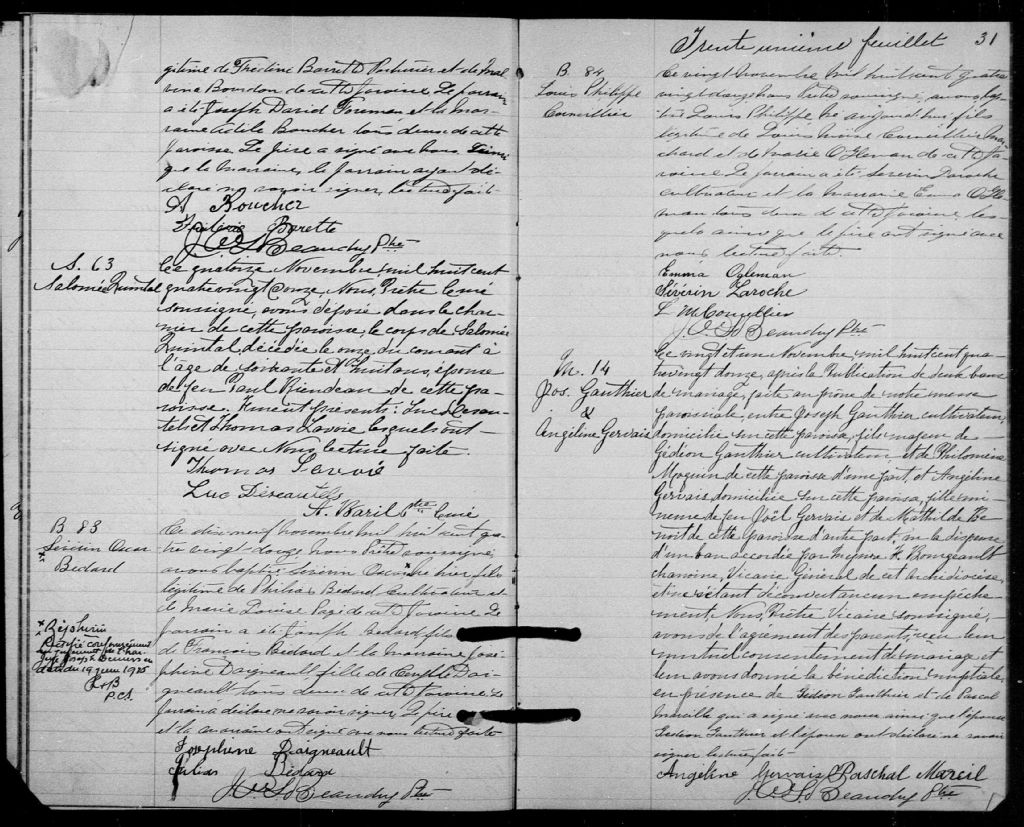 gitime de Frédéric Barrette Posturier et de Mal
vina Bourdon de cette paroisse. Le parrain
a été Joseph David Foreman et la mar
raine Adèle Boucher tous deux de cette
paroisse. Le père a signé avec nous. Ainsi
que la marraine, le parrain ayant dé
claré ne savoir signer, lecture faite
A Boucher
Frédéric Barette
J. O. S. Beaudry Ptre
S. 63
Salomée Quintal
Le quatorze Novembre mil huit cent
quatrevingt douze, Nous, Prêtre Curé
soussigné, avons déposé dans le char
nier de cette paroisse, le corps de Salomée
Quintal, décédée le onze du courant à
l'âge de soixante et huit ans, épouse
de feu Paul Riendeau de cette pa
roisse. Furent présents: Luc Desau
tels et Thomas Lavoie lesquels ont
signé avec Nous lecture faite.
Thomas Lavoie
Luc Déseautels
H. Baril Ptre Curé
B 83
Séverin Oscar
Bédard
Ce dix neuf novembre mil huit cent qua
tre vingt douze, nous Prêtre soussigné,
avons baptisé Séverin Oscar né hier fils
légitime de Philias Bédard Cultivateur et
de Marie Louise Pagé de cette paroisse. Le
parrain a été Joseph Bedard fils
de François Bédard et la marraine José
phine Daigneault fille de Daig
neault tous deux de cette paroisse. Le
parrain a déclaré ne savoir signer. Le père
et la marraine ont signé avec nous lecture faite
Zéphirin
Rectifié conformément
au jugement
Juge
daté du 19 juin 1925
P.C.S.
Josephine Daigneault
Philias Bédard
J. O. S. Beaudry Ptre
Trente unième feuillet 31
B. 84
Louis Philippe
Cornellier
Le vingt novembre mil huit cent quatre
vingt douze nous Prêtre soussigné, avons bap
tisé Louis Philippe né aujourd'hui fils
légitime de Louis Moïse Cornellier Mar
chand et de Marie O'Gleman de cette pa
roisse. Le parrain a été Séverin Laroche
cultivateur et la marraine Emma O'Gle
man tous deux de cette paroisse, les
quels ainsi que le père ont signé avec
nous lecture faite.
Emma Ogleman
Séverin Laroche
L M Cornellier
J. O. S. Beaudry Ptre
M. 14
Jos. Gauthier
&
Angéline Gervais
Le vingt et un Novembre, mil huit cent qua
trevingt douze, après la Publication de deux bans
de mariage, faite au prône de notre messe
paroissiale, entre Joseph Gauthier cultivateur,
domicilié sur cette paroisse, fils majeur de
Gédéon Gauthier cultivateur et de Philomène
Moquin de cette paroisse d'une part, et Angéline
Gervais domiciliée sur cette paroisse, fille mi
neure de feu Joël Gervais et de Mathilde Be
noit de cette paroisse d'autre part, vu la dispense
d'un ban accordée par Mgnr F. Bourgeault
chanoine, Vicaire Général de cet Archidiocèse,
et ne s'étant découvert aucun empêche
ment, Nous, Prêtre Vicaire soussigné,
avons de l'agrément des parents, reçu leur
mutuel consentement de mariage et
leur avons donné la bénédiction nuptiale,
en présence de Gédéon Gauthier et de Pascal
Mareille qui a signé avec nous ainsi que l'épouse
Gédéon Gauthier et l'époux ont déclaré ne savoir
signer lecture faite.
Angéline Gervais Paschal Mareil
J. O. S. Beaudry Ptre